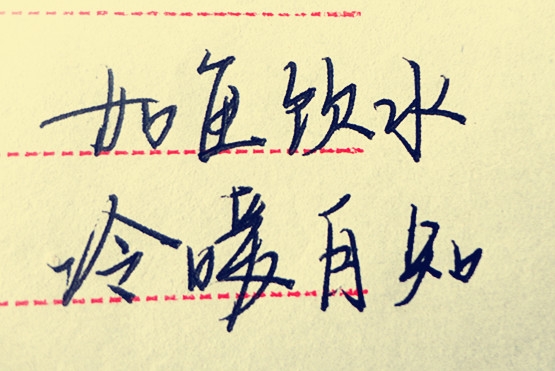 如鱼饮水
冷暖自知